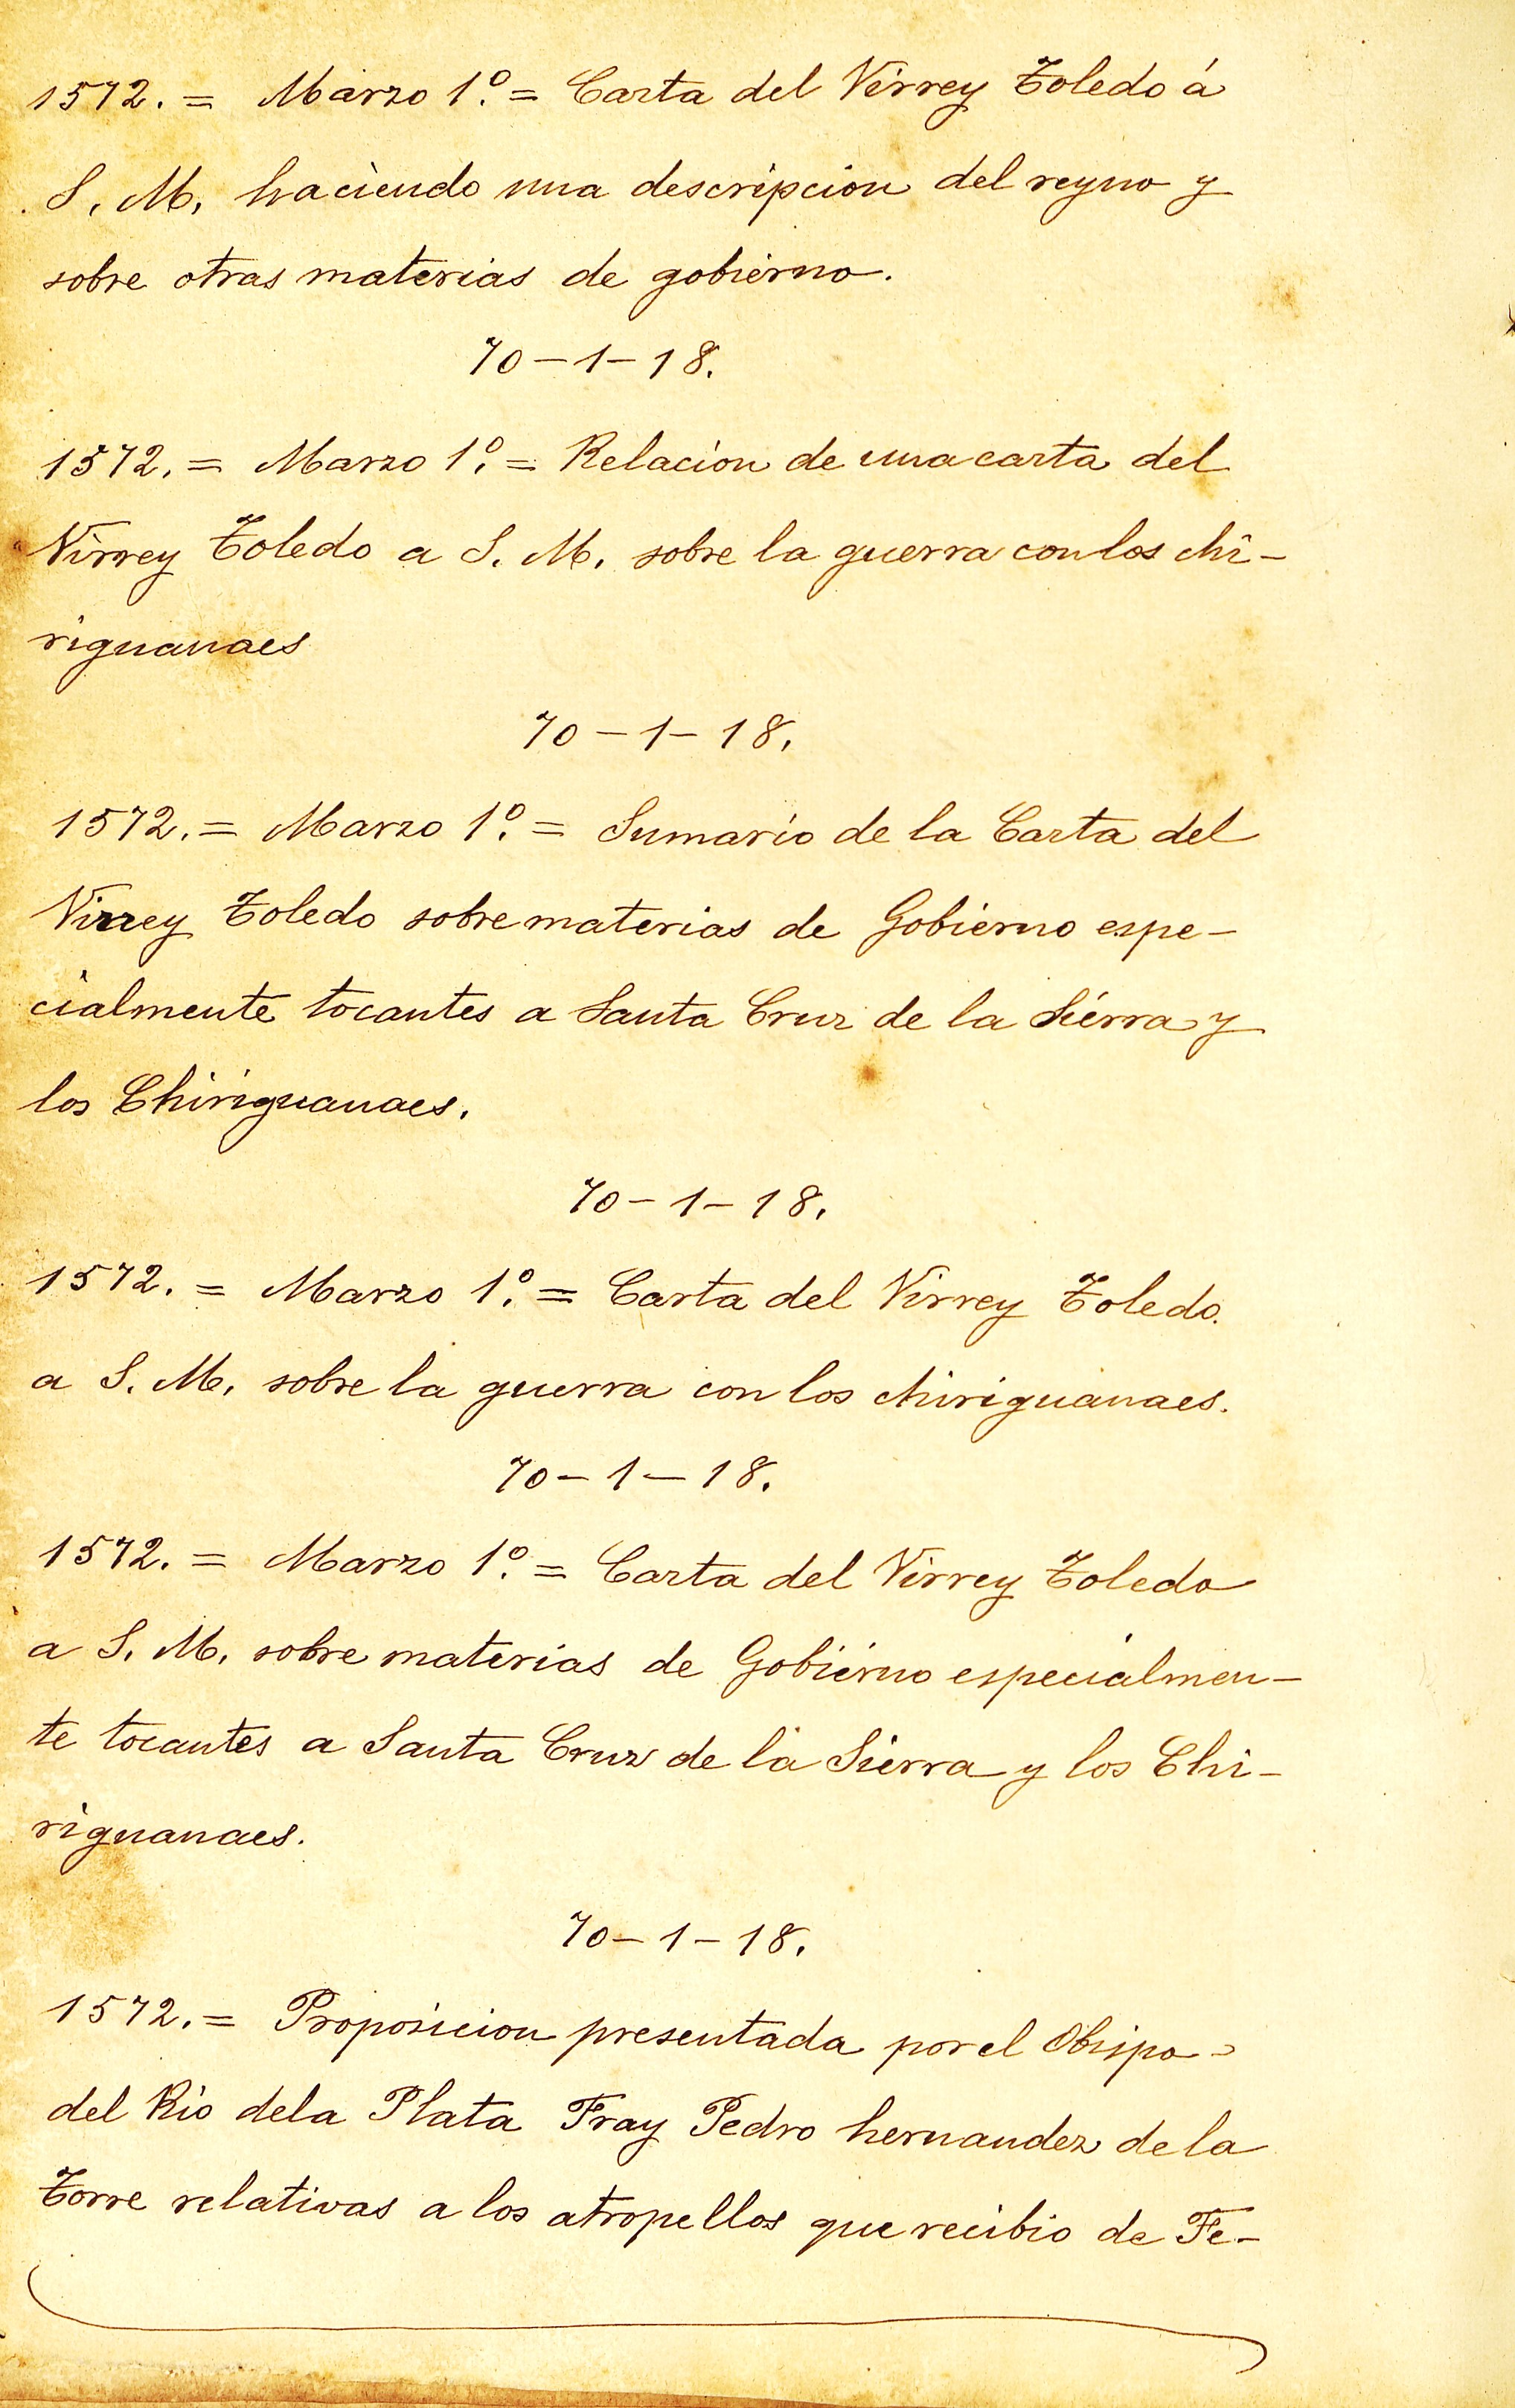 1572. = Marzo 1º. = Carta del Virrey Toledo á
S. M. haciendo una descripcion del reyno y
sobre otras materias de gobierno.
70-1-18.
1572. = Marzo 1º. = Relacion de una carta del
Virrey Toledo a S. M. sobre la guerra con los chi-
riguanaes
70-1-18.
1572. = Marzo 1º. = Sumario de la Carta del
Virrey Toledo sobre materias de Gobierno espe-
cialmente tocantes a Santa Cruz de la Sierra y
los Chiriguanaes.
70-1-18.
1572. = Marzo 1º. = Carta del Virrey Toledo.
a S. M. sobre la guerra con los chiriguanaes.
70-1-18.
1572. = Marzo 1º. = Carta del Virrey Toledo
a S. M. sobre materias de Gobierno especialmen-
te tocantes a Santa Cruz de la Sierra y los Chi-
riguanaes.
70-1-18.
1572. = Proposicion presentada por el Obispo
del Rio de la Plata Fray Pedro hernandez de la
Torre relativas a los atropellos que recibio de Fe-